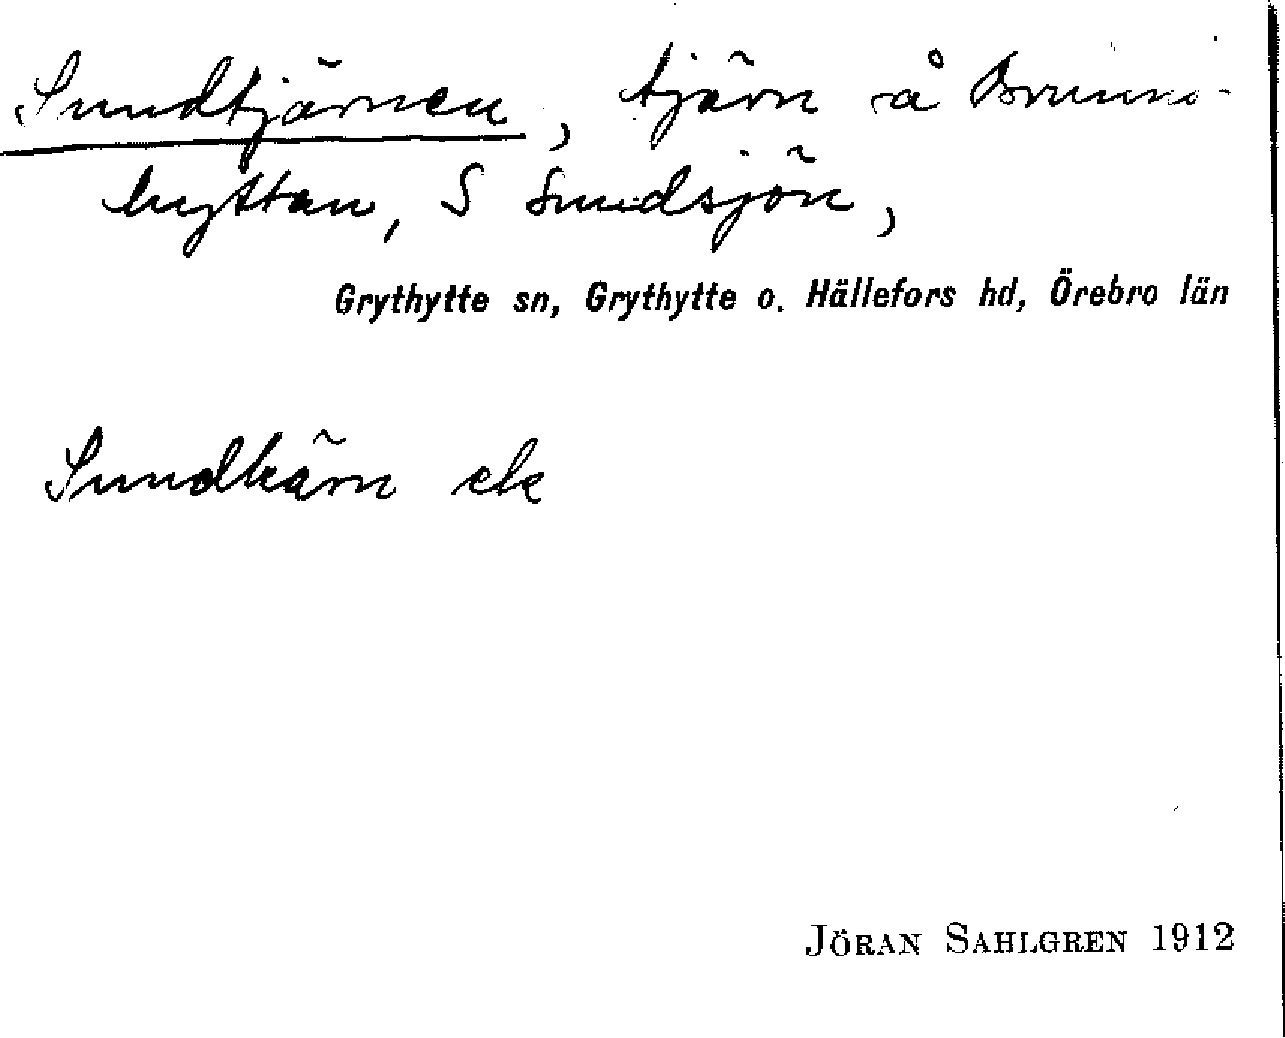 Sundtjärnen, tjärn å Brunns-
hyttan, S Sundsjön,
Grythytte sn, Grythytte o. Hällefors hd, Örebro län
Sundkärn ek
JÖRAN SAHLGREN 1912